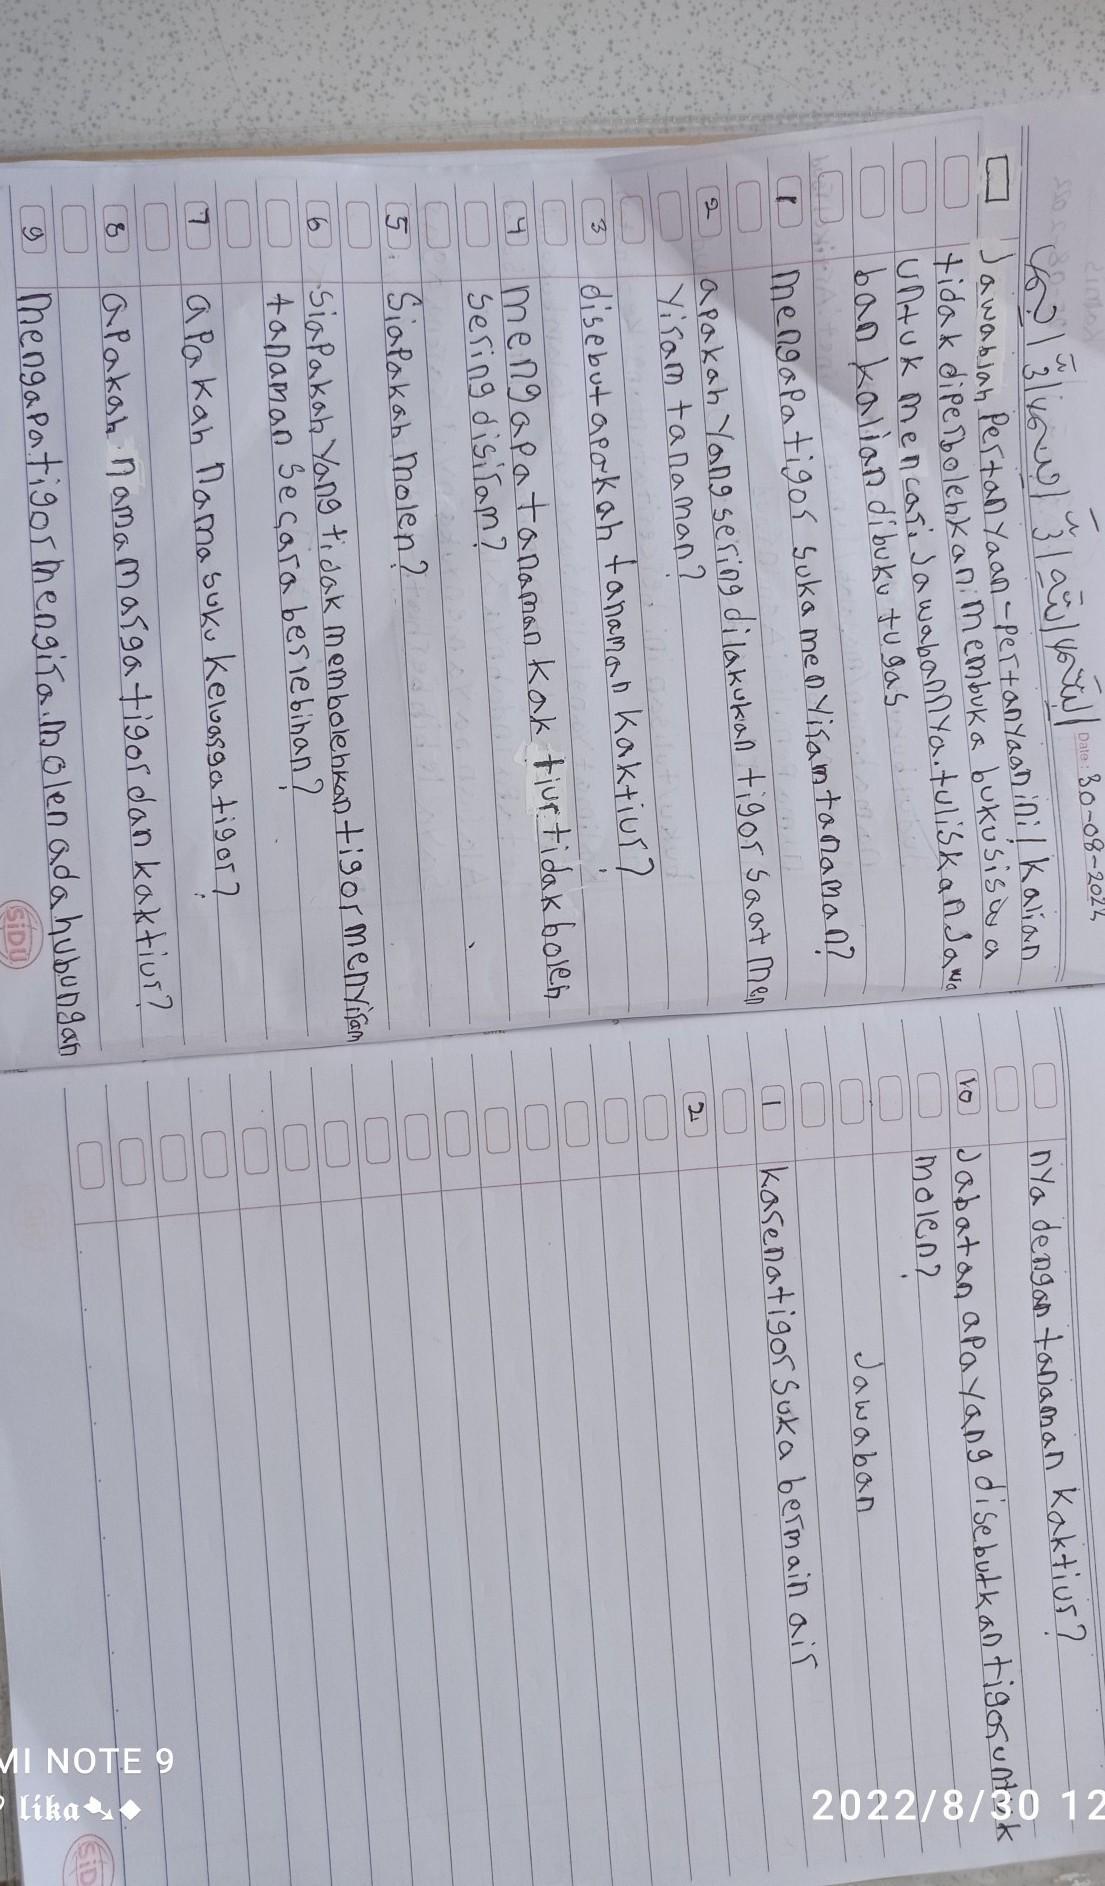 Date: 30-08-2022
Jawablah Pertanyaan-pertanyaan ini! Kalian
tidak diperbolehkan membuka buku siswa
untuk mencari Jawabannya. tuliskan Jawa
ban kalian dibuku tugas
1 mengapa tigor suka menyiram tanaman?
2 apakah yang sering dilakukan tigor saat men
yiram tanaman?
3 disebut apakah tanaman kaktiur?
4 mengapa tanaman kak tiur tidak boleh
sering disiram?
5. Siapakah molen?
6 Siapakah yang tidak membolehkan tigor menyiram
tanaman secara berlebihan?
7 apakah nama suku keluarga tigor?
8 apakah nama marga tigor dan kaktiur?
9 mengapa tigor mengira molen ada hubungan
SIDU
nya dengan tanaman kaktiur?
10 Jabatan apa yang disebutkan tigor untuk
molen?
Jawaban
1 karena tigor suka bermain air
2.
MI NOTE 9
lika
2022/8/30 12